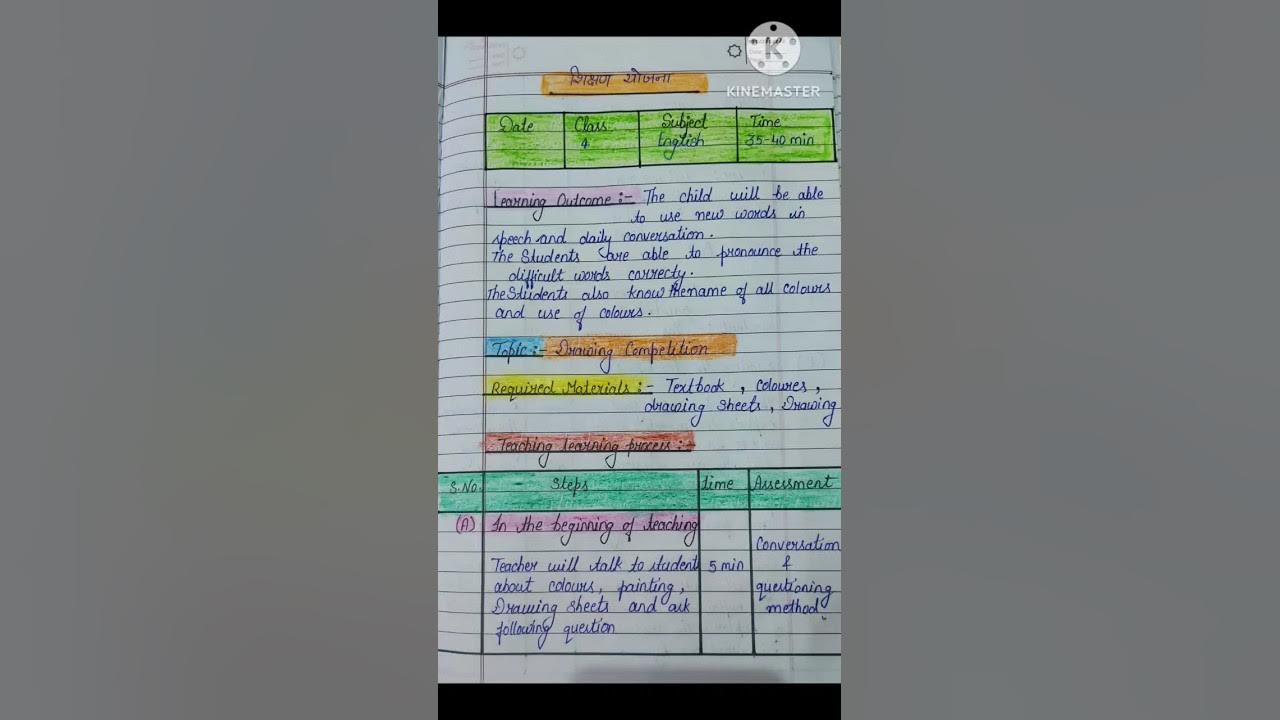 KINEMASTER
शिक्षण योजना
Date Class Subject Time
4 English 35-40 min
Learning Outcome :- The child will be able
to use new words in
speech and daily conversation.
The Students are able to pronounce the
difficult words correcty.
The Students also know the name of all colours
and use of colours.
Topic :- Drawing Competition
Required Materials :- Textbook , coloures ,
drawing sheets , Drawing
Teaching learning process :-
S.No. Steps time Assessment
(A) In the beginning of teaching
Conversation
Teacher will talk to student 5 min &
about colours, painting, questioning
Drawing sheets and ask method.
following question